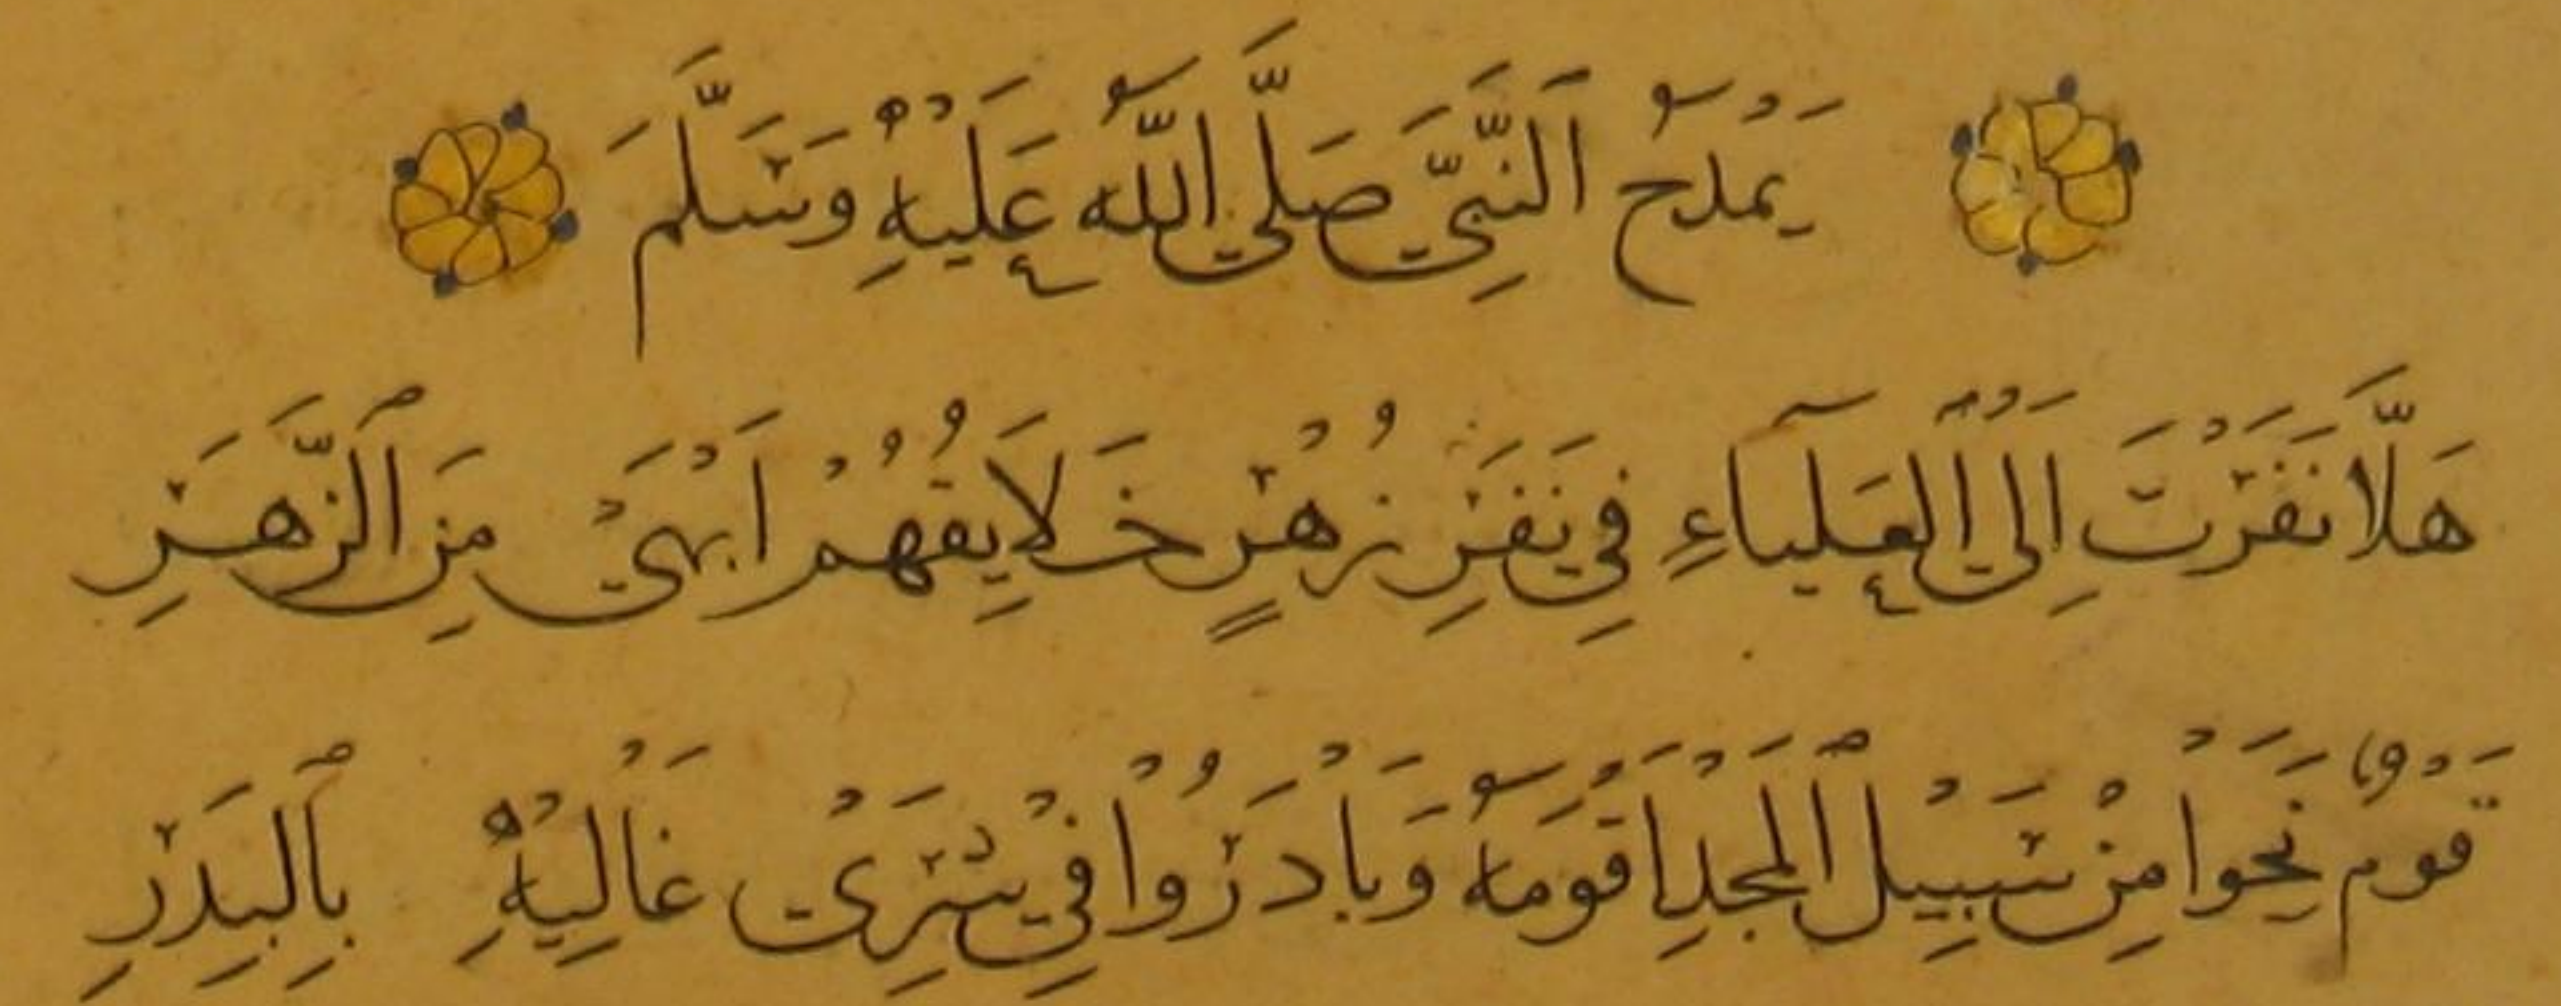 يَمْدَحُ اَلنَّبِيَّ صَلَّى اللّٰهُ عَلَيْهِ وَسَلَّمَ
هَلَّا نَفَرْتَ اِلَى الْعَلْيَآءِ فِي نَفَرِ زُهْرٍ خَلَايِقُهُمْ اَبْهَى مِنَ الزَّهَرِ
قَوْمٌ نَحَوْا مِنْ سَبِيْلِ الْمَجْدِ اَقْوَمَهُ وَبَادَرُوْا فِيْ سُرَى غَالِيْهِ بِالْبِدَرِ